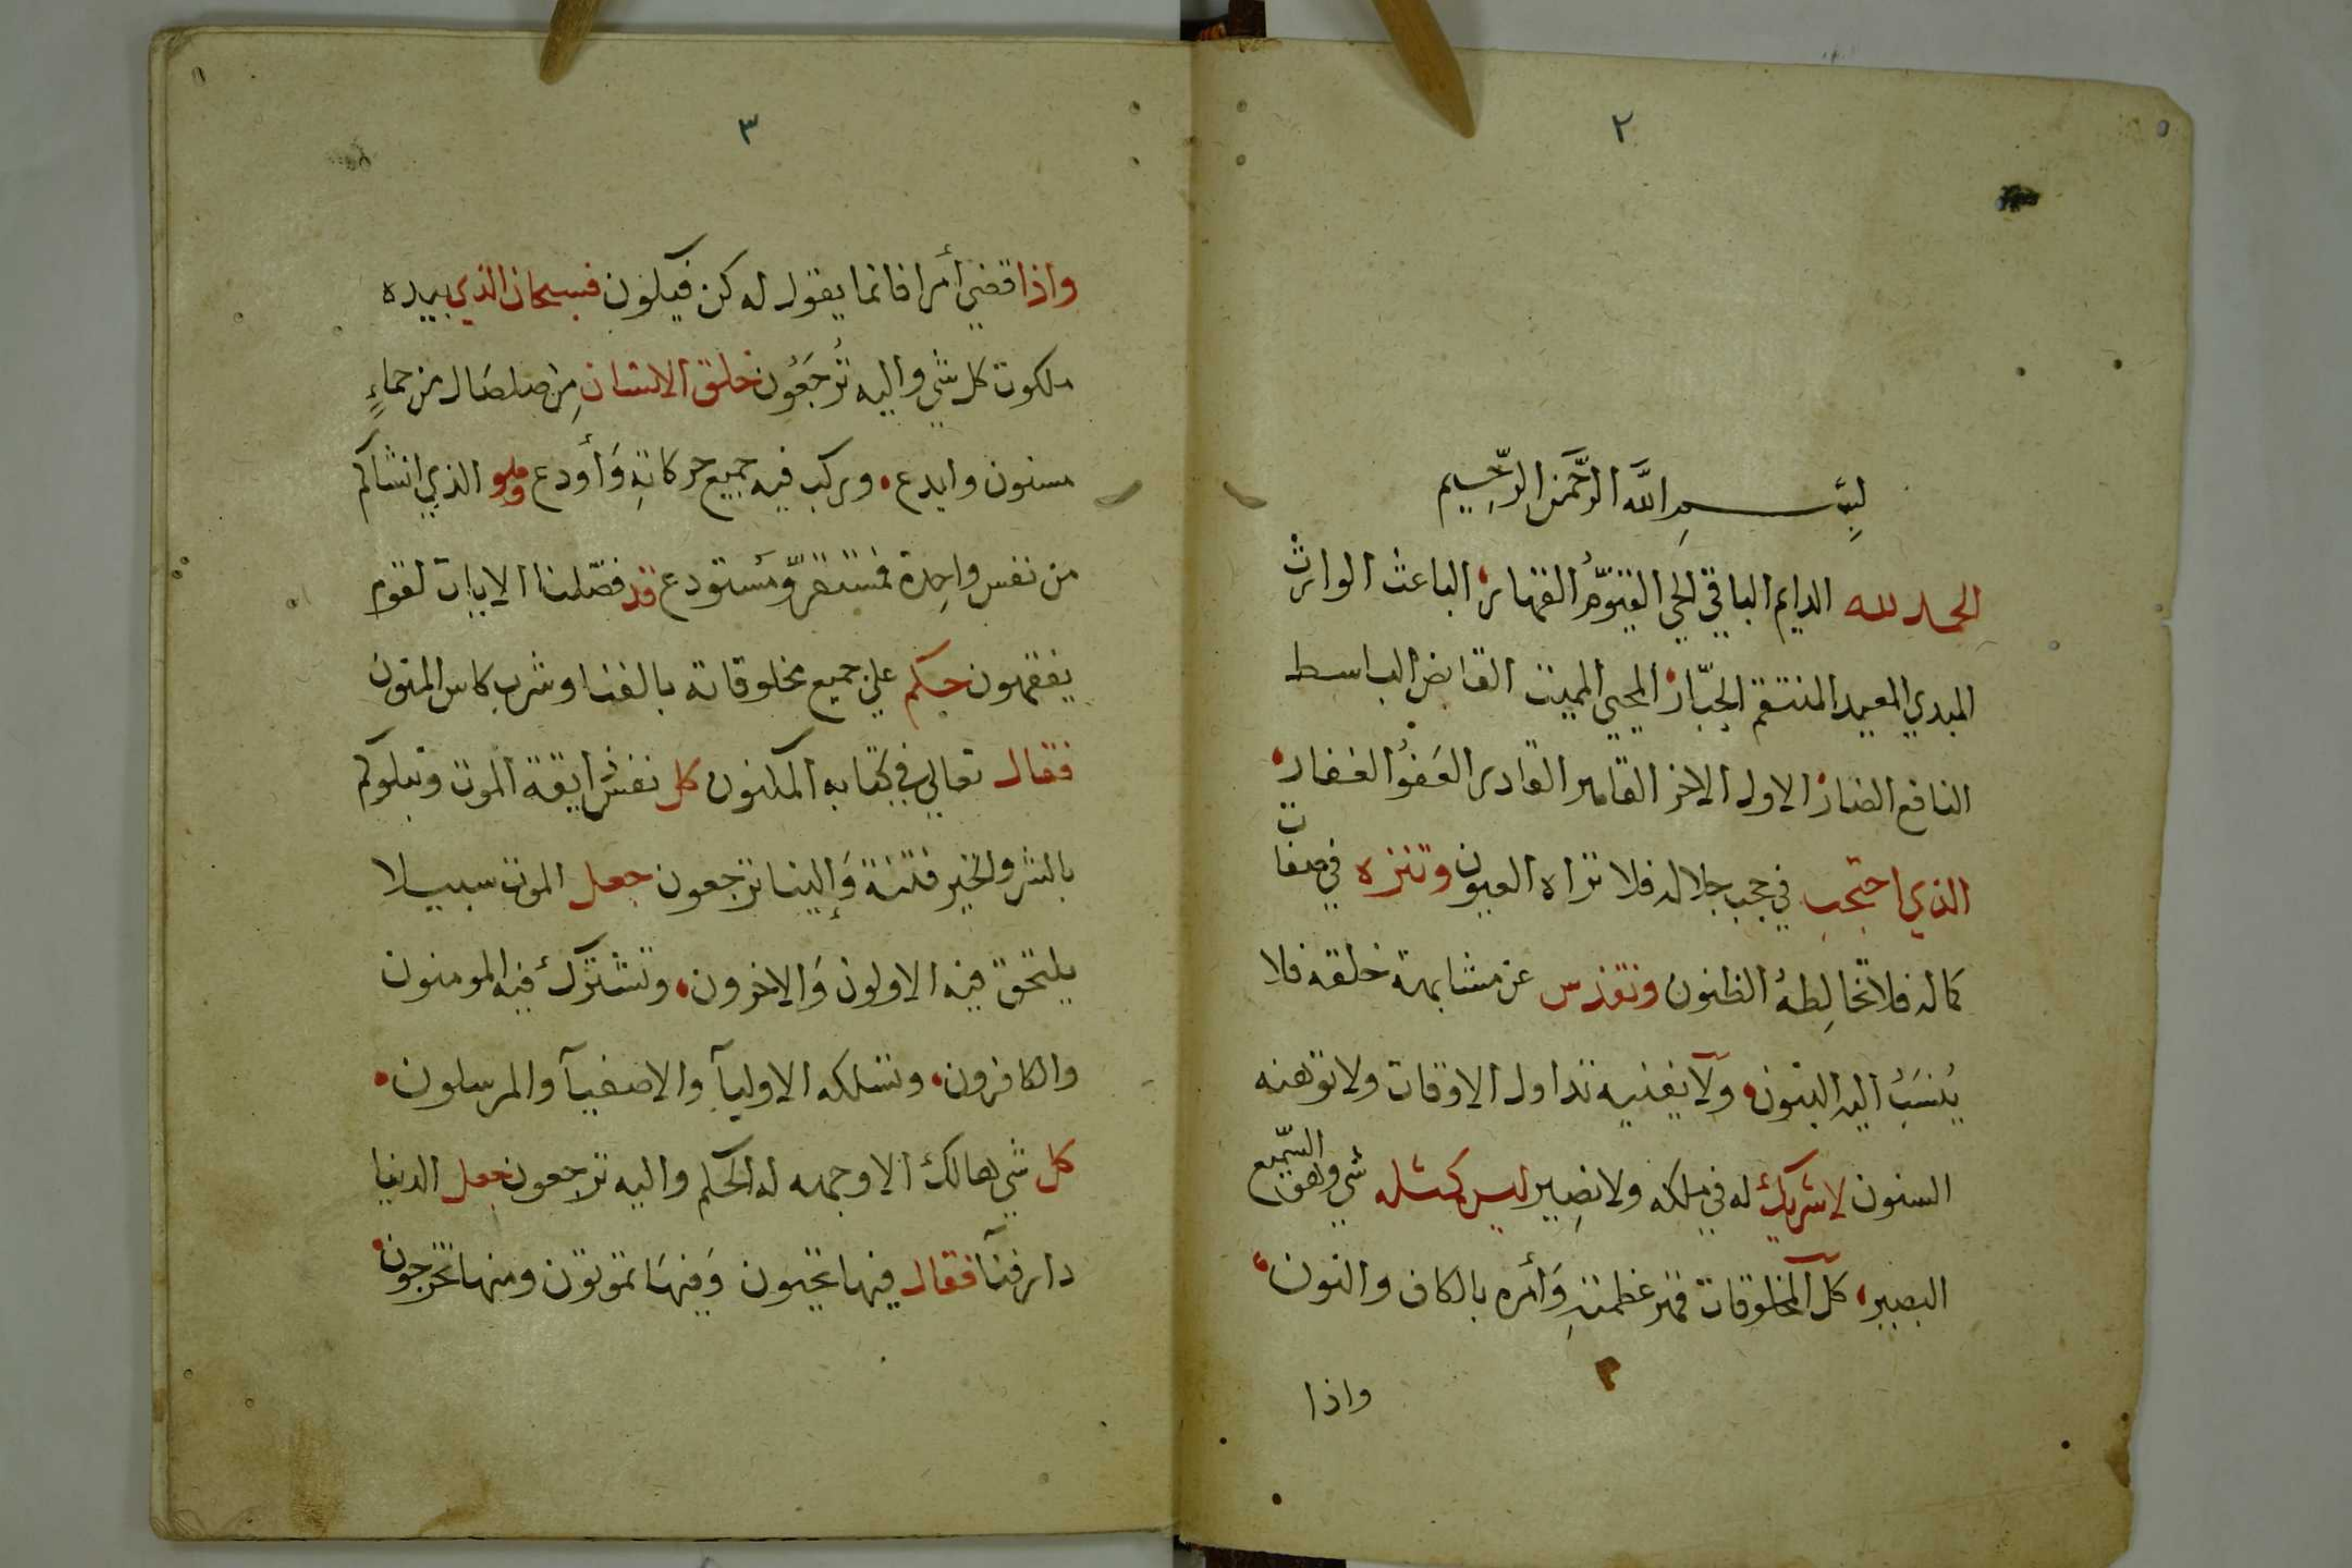 ٢
بِسْمِ اللَّه الرَّحْمَن الرَّحِيم
الحمد لله الدايم الباقي الحي القيّومُ القهار الباعث الوارث
المبدي المعيد المنتقم الجبّار المحيي المميت القابض الباسط
النافع الضار الاول الاخر القاهر القادر العَفوُ الغفار
الذي احتجب في حجب جلاله فلا تراه العيون وتنزه في صفات
كماله فلا تخالِطهُ الظنون وتقدس عن مشابهة خلقه فلا
يُنسَبُ اليه البنون ولا يفنيه تداول الاوقات ولا توهنه
السنون لا شريك له في ملكه ولا نصِير ليس كمثله شي وهو السّميع
البصير كل المخلوقات قهر عظمتهِ وَأمره بالكاف والنون
واذا
٣
واذا قضي أمرا فانما يقول له كن فيكون فسبحان الذي بيده
ملكوت كل شي واليه تُرجَعُون خلق الانسان مِن صلصَال من حماءٍ
مسنون وابدع وركب فيه جميع حركاتهِ وَأودع وهو الذي انشاكم
من نفس واحِدة فمستقرّ ومُستودع قد فصّلنا الايات لقوم
يفقهون حكم علي جميع مخلوقاته بالفنا وشرب كاس المنون
فقال تعالي في كتابه المكنون كل نفس ذايقة الموت ونبلوكم
بالشر والخير فتنة وَإلينا ترجعون جعل الموت سبيلا
يلتحق فيه الاولون وَالاخرون وتشترك فيه المومنون
والكافرون وتسلكه الاوليآ والاصفيآ والمرسلون
كل شي هالك الا وجهه له الحكم واليه ترجعون جعل الدنيا
دار فنآ فقال فيها تحيون وَفيهَا تموتون ومنها تخرجون